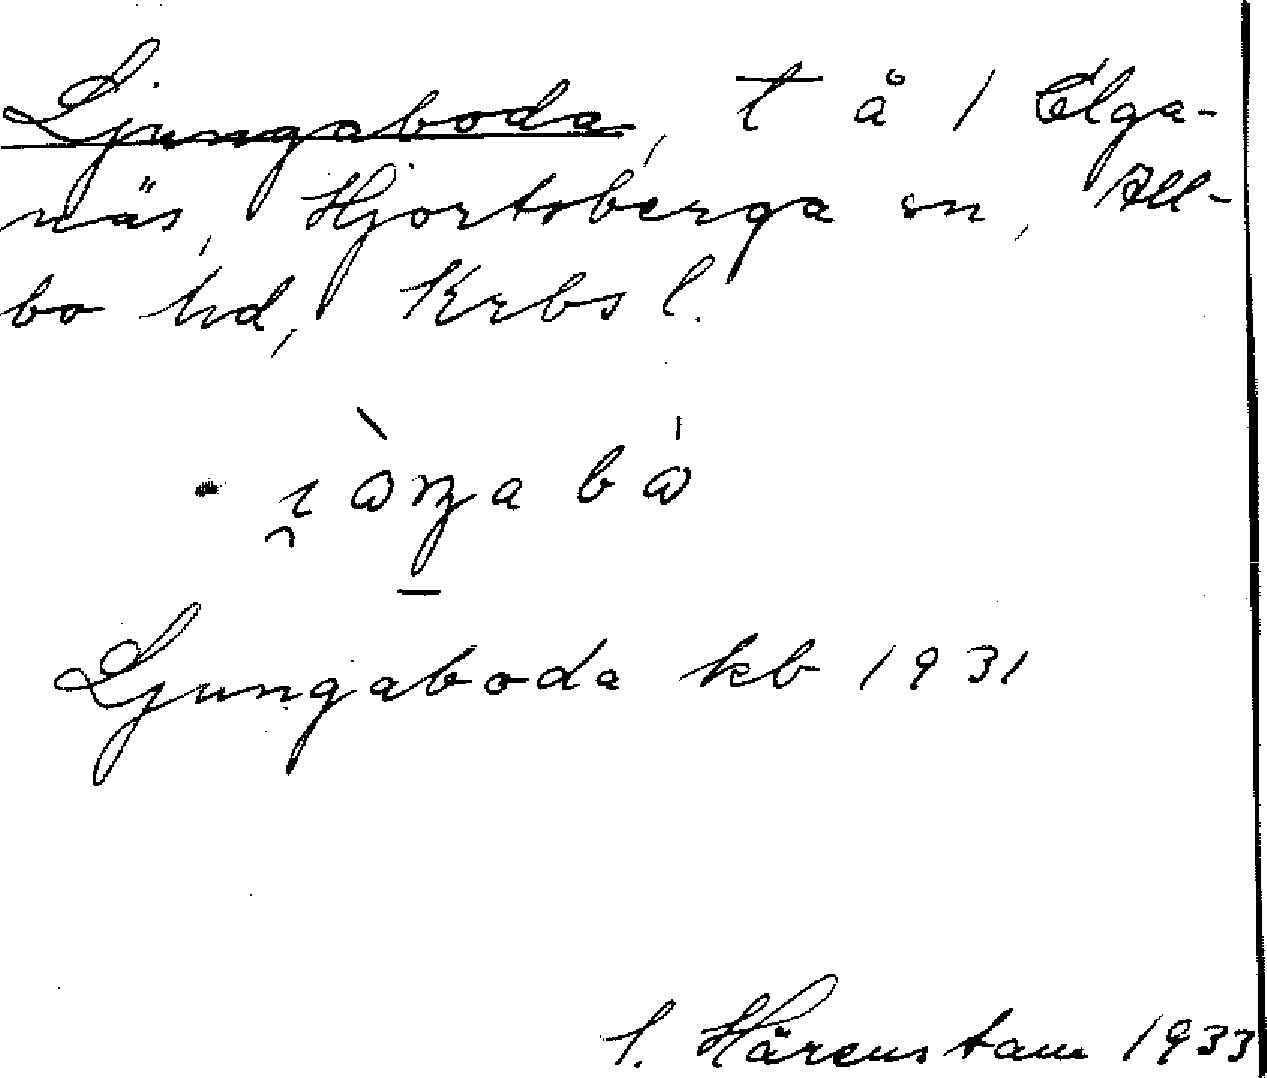 Ljungaboda, t å 1 Elga-
näs, Hjortsberga sn, All-
bo hd, Krbs l.
Ljungaboda kb 1931
Härenstam 1933